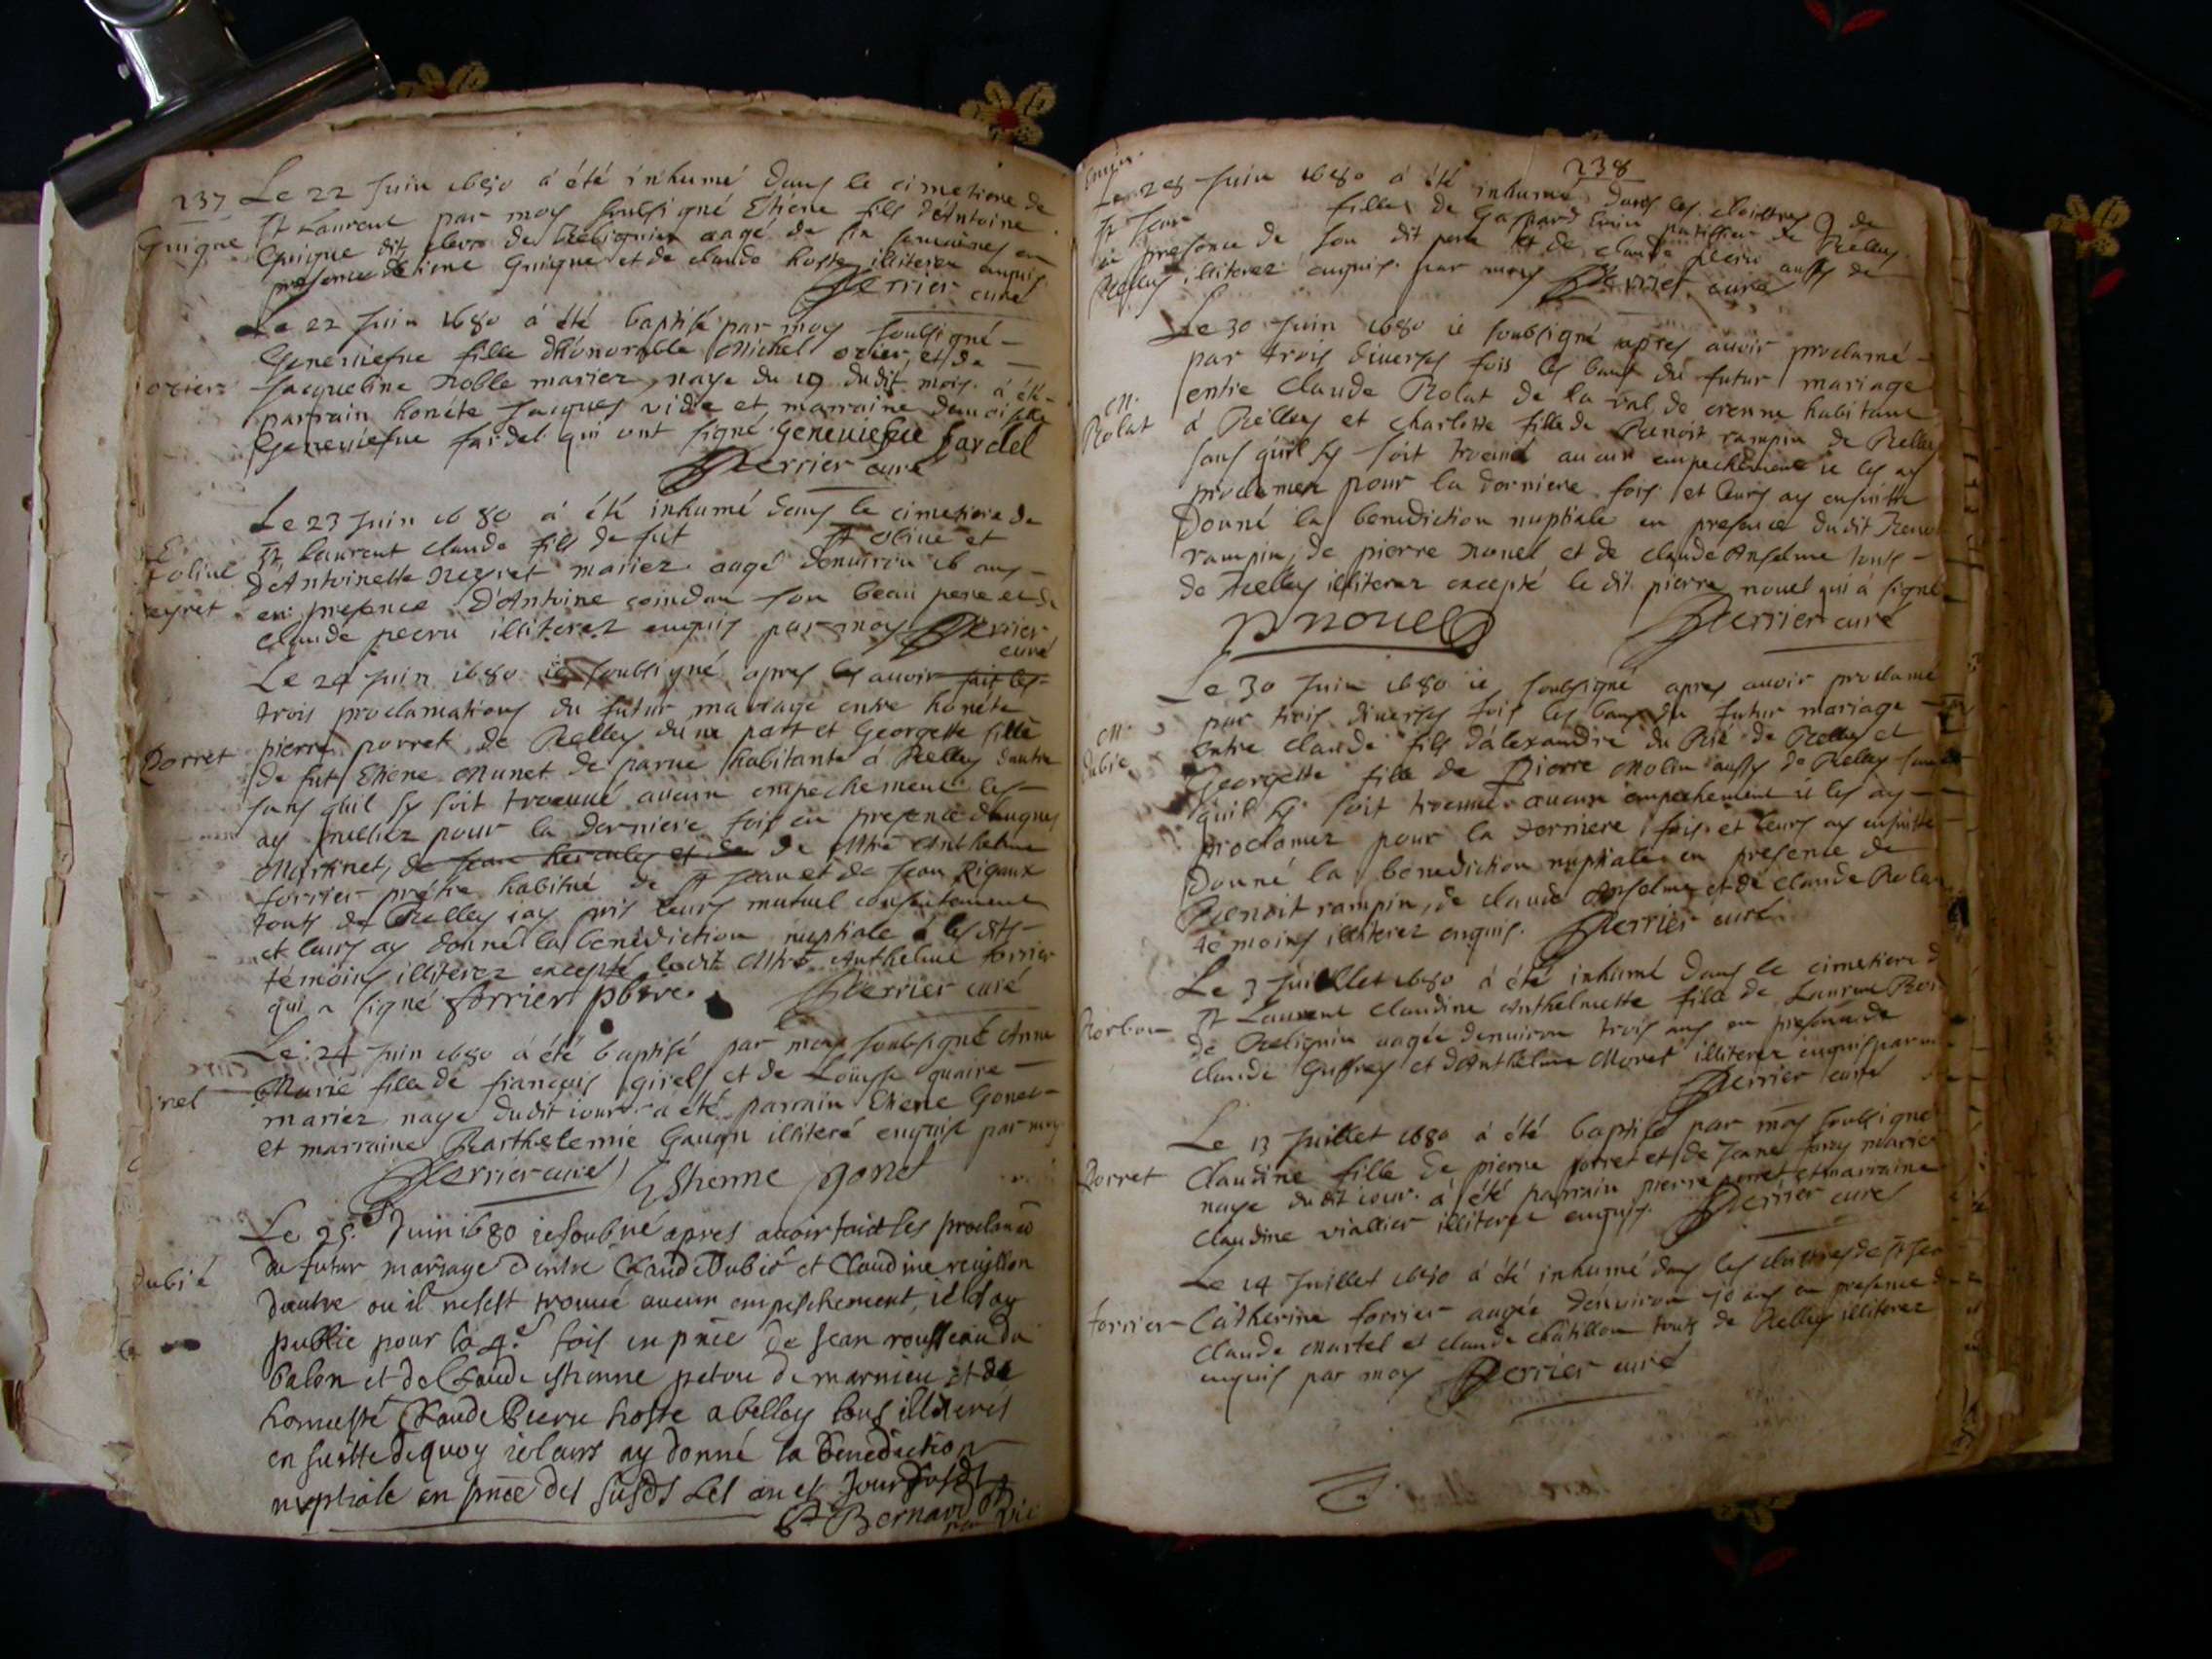 237
Le 22 Juin 1680 à été inhumé dans le cimetiere de
St Laurent par moy soubsigné Etiene fils d'Antoine
Guigue
Guigue dit de aagé de six semaines en
presence d'Etiene Guigue et de claude hoste illiterez enquis
Perrier curé
Le 22 Juin 1680 à été baptisé par moy soubsigné
Geneuiefue fille d'honorable Michel ozier, et de
ozier
Jacqueline Noble mariez, naye du 19 dudit mois à été
parrain honéte Jacques et, marraine damoiselle
Geneuiefue fardel qui ont signé Geneuiefue fardel
Perrier curé
Le 23 Juin 1680 à été inhumé dans le cimetiere de
St Laurent claude fils de fut St oliue et
d'Antoinette Neyret mariez aagé denuiron 16 ans
en presence d'Antoine coindou son beau pere et de
claude pecru illiterez enquis par moy Perrier
curé
Le 24 Juin 1680 ie soubsigné apres les auoir fait les
trois proclamations du futur mariage entre honéte
Porret
pierre porret de Belley d'une part et Georgette fille
de fut Etiene Munet de parue habitante à Belley dautre
sans quil sy soit trouuué aucun empechement les
ay publiez pour la derniere fois en presence d'hugues
Martinet, de Jean hercules et de de Mtre Anthelme
forrier prétre habitué de St Jean et de Jean Rigaux
touts de Belley iay pris leurs mutuel consentement
et leurs ay donné la benediction nuptiale les dits
témoins illiterez excepté ledit Mtre Anthelme forrier
qui a signé forrier pbre. Perrier curé
Le 24 Juin 1680 à été baptisé par moy soubsigné Anne
Marie fille de françois girel et de Loüyse quaire
mariez naye dudit iour à été parrain Etiene Gonet
et marraine Barthelemie Gauyn illiteré enquise par moy
Perrier curé Esthienne gonet
Le 25e Juin 1680 ie soubné apres auoir faict les proclamaõ
Dubié
du futur mariage dentre Claude Dubié et Claudine reuillon
dautre ou il ne sest trouué aucun empeschement, ie les ay
publie pour la 4e fois en pñce de Jean rousseau du
balon et de Claude estienne petou de marnieu et de
honneste Claude Pecru hoste a belley tous illiterés
en suitte dequoy ie leurs ay donné la benediction
nuptiale en pñce des susds Les an et Jour susds
Bernard
238
Le 28 Juin 1680 à été inhumé dans les cloistres de
St Jean fille de Gaspard patissier de Belley
en presence de son dit pere et de claude aussy de
Belley illiterez enquis par moy Perrier curé
Le 30 Juin 1680 ie soubsigné apres auoir proclamé
par trois diuerses fois les bans du futur mariage
m.
Rolat
entre Claude Rolat de la val de crenne habitant
à Belley et charlotte fille de Benoit rampin de Belley
sans quil sy soit trouué aucun empechement ie les ay
proclamez pour la derniere fois et leurs ay ensuitte
Donné la benediction nuptiale en presence dudit Benoi
rampin, de pierre nouel et de claude Anselme touts
de Belley illiterez excepté le dit pierre nouel qui à signé
p nouel Perrier curé
Le 30 Juin 1680 ie soubsigné apres auoir proclamé
par trois diuerses fois les bans du futur mariage
m.
dubie
entre claude fils d'alexandre du Bié de Belley et
Georgette fille de Pierre Molin aussy de Belley sans
quil sy soit trouué aucun empechement ie les ay
proclamez pour la derniere fois et leurs ay ensuitte
Donné la benediction nuptiale en presence de
Benoit rampin, de claude Anselme et de Claude Rolat
témoins illiterez enquis. Perrier curé
Le 3 Juillet 1680 à été inhumé dans le cimetiere d
St Laurent Claudine Anthelmette fille de Laurent
de Belignin aagée denuiron trois ans en presence de
claude Guffrey et d'Anthelme Moret illiterez enquis par
Perrier curé
Le 13 Juillet 1680 à été baptisé par moy soubsigné
Porret
Claudine fille de pierre porret et de Jeane mariez
naye dudit iour à été parrain pierre porret et marraine
Claudine viallier illiterez enquis. Perrier curé
Le 14 Juillet 1680 à été inhumé dans les cloitres de St Jea
forrier
Catherine forrier aagée denuiron 70 ans en presence d
Claude Martel et claude châtillon touts de Belley illiterez
enquis par moy Perrier curé